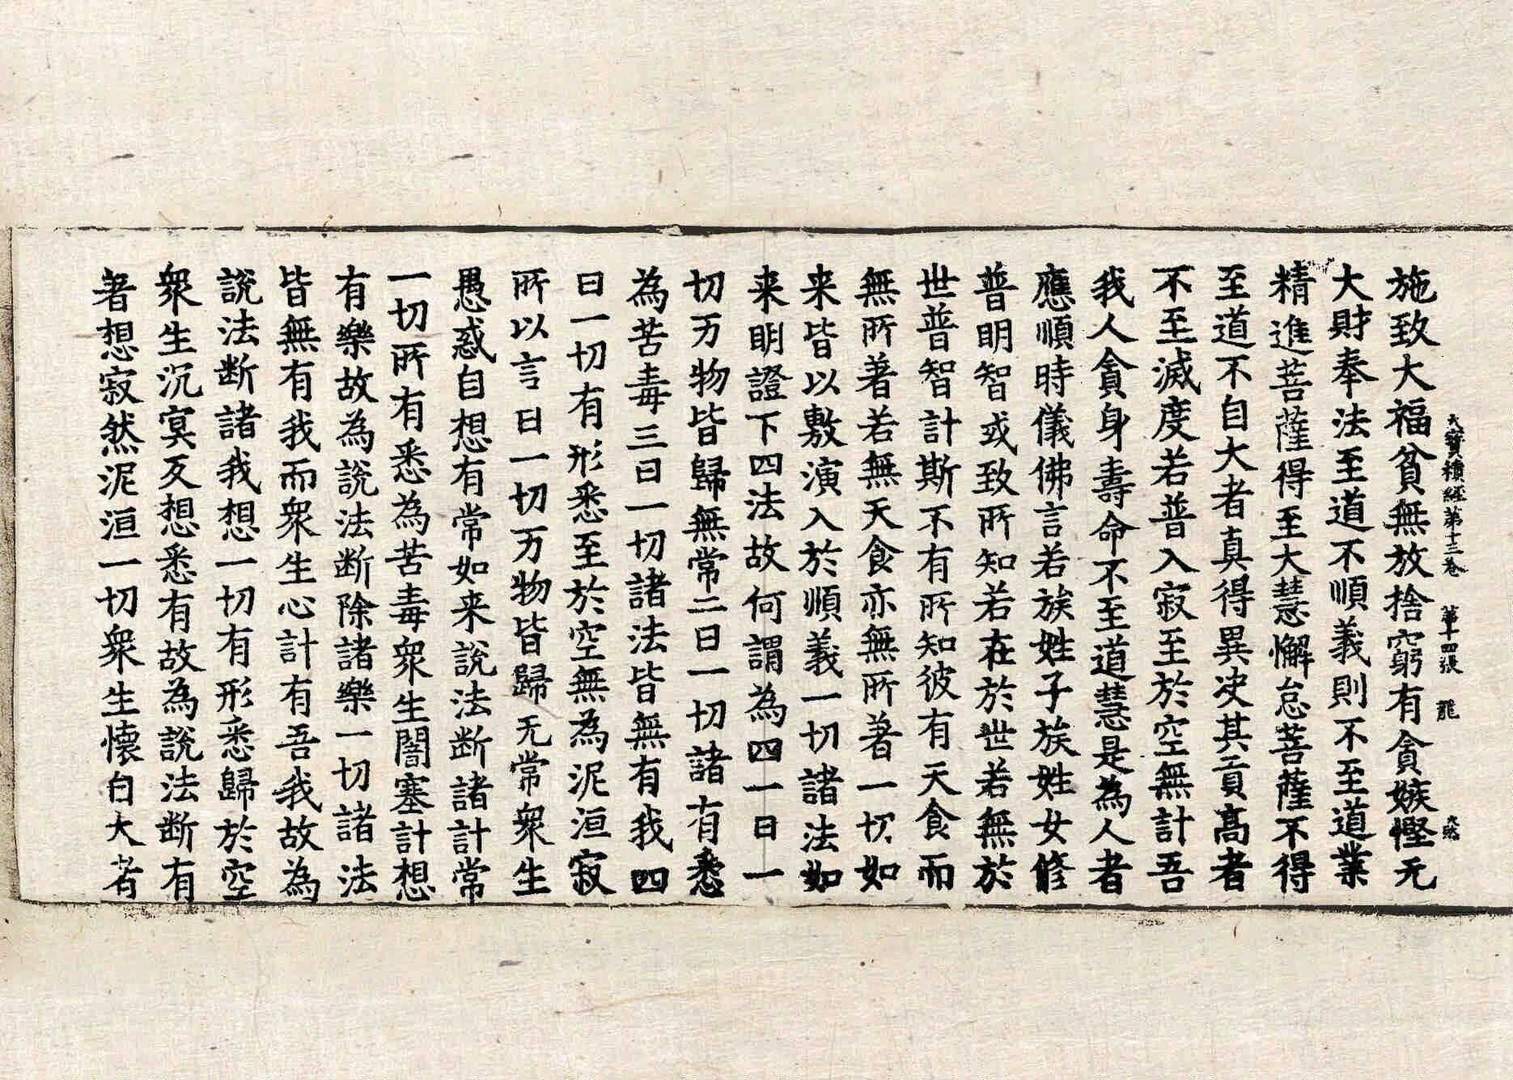 大寶積經第十三卷　第十四張　龍
施致大福貧無放捨窮有貪嫉慳无
大財奉法至道不順義則不至道業
精進菩薩得至大慧懈怠菩薩不得
至道不自大者真得異决其貢高者
不至滅度若普入寂至於空無計吾
我人貪身壽命不至道慧是為人者
應順時儀佛言若族姓子族姓女修
普明智或致所知若在於世若無於
世普智計斯不有所知彼有天食而
無所著若無天食亦無所著一切如
来皆以敷演入於順義一切諸法如
来明證下四法故何謂為四一曰一
切万物皆歸無常二曰一切諸有悉
為苦毒三曰一切諸法皆無有我四
曰一切有形悉至於空無為泥洹寂
所以言曰一切万物皆歸无常衆生
愚惑自想有常如来說法断諸計常
一切所有悉為苦毒衆生闇塞計想
有樂故為說法断除諸樂一切諸法
皆無有我而衆生心計有吾我故為
說法断諸我想一切有形悉歸於空
衆生沉冥反想悉有故為說法断有
著想寂然泥洹一切衆生懷自大者